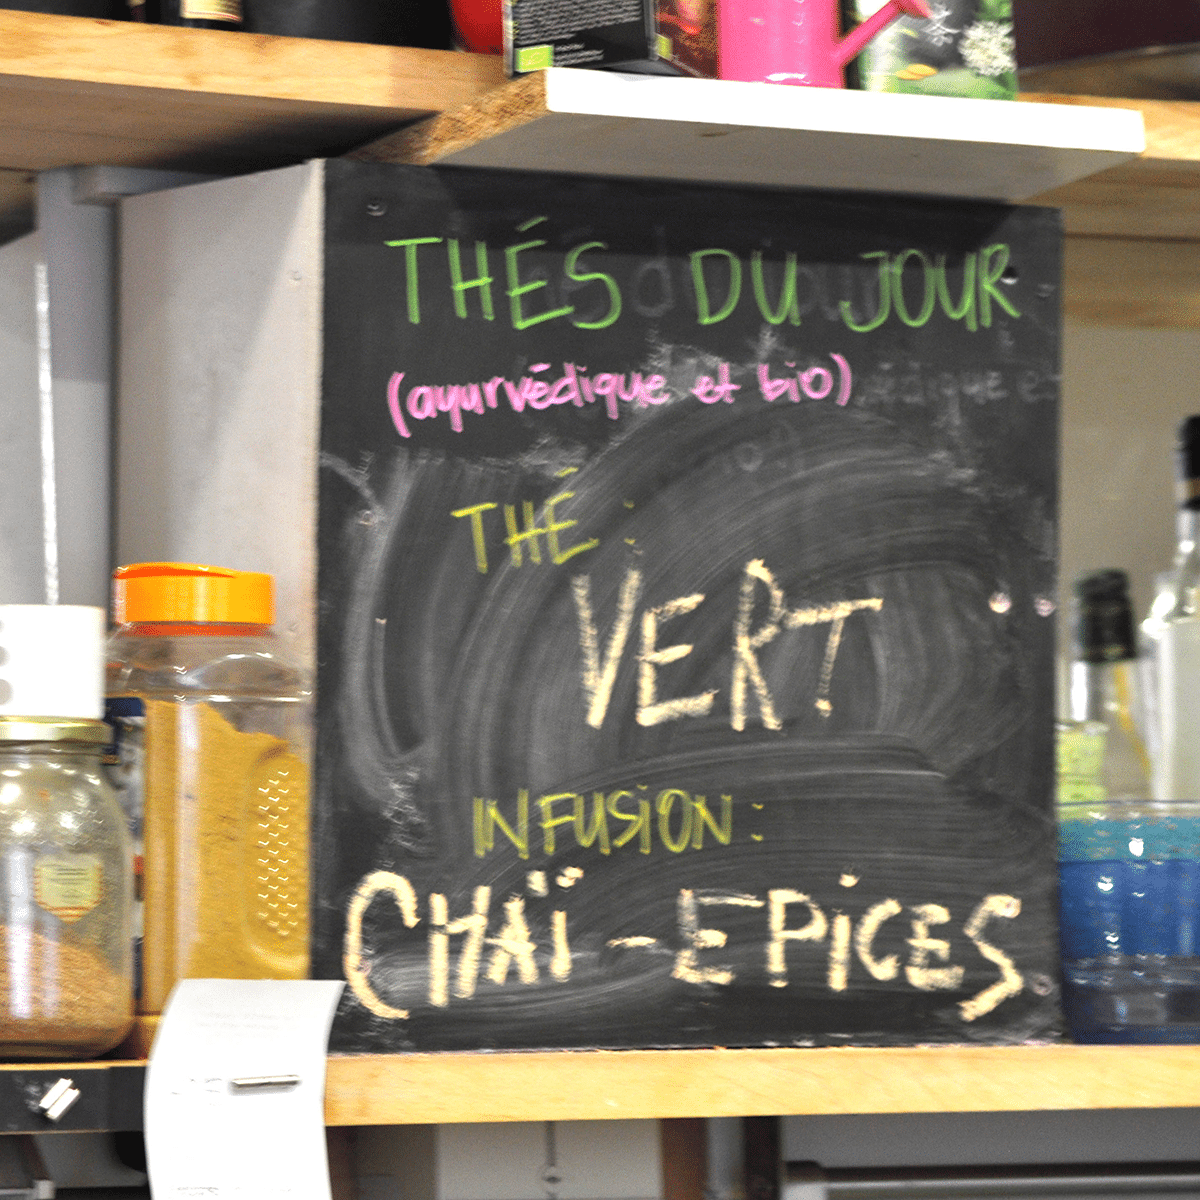 THÉS DU JOUR
(ayurvédique et bio)
THÉ :
VERT
INFUSION :
CHAÏ - EPICES